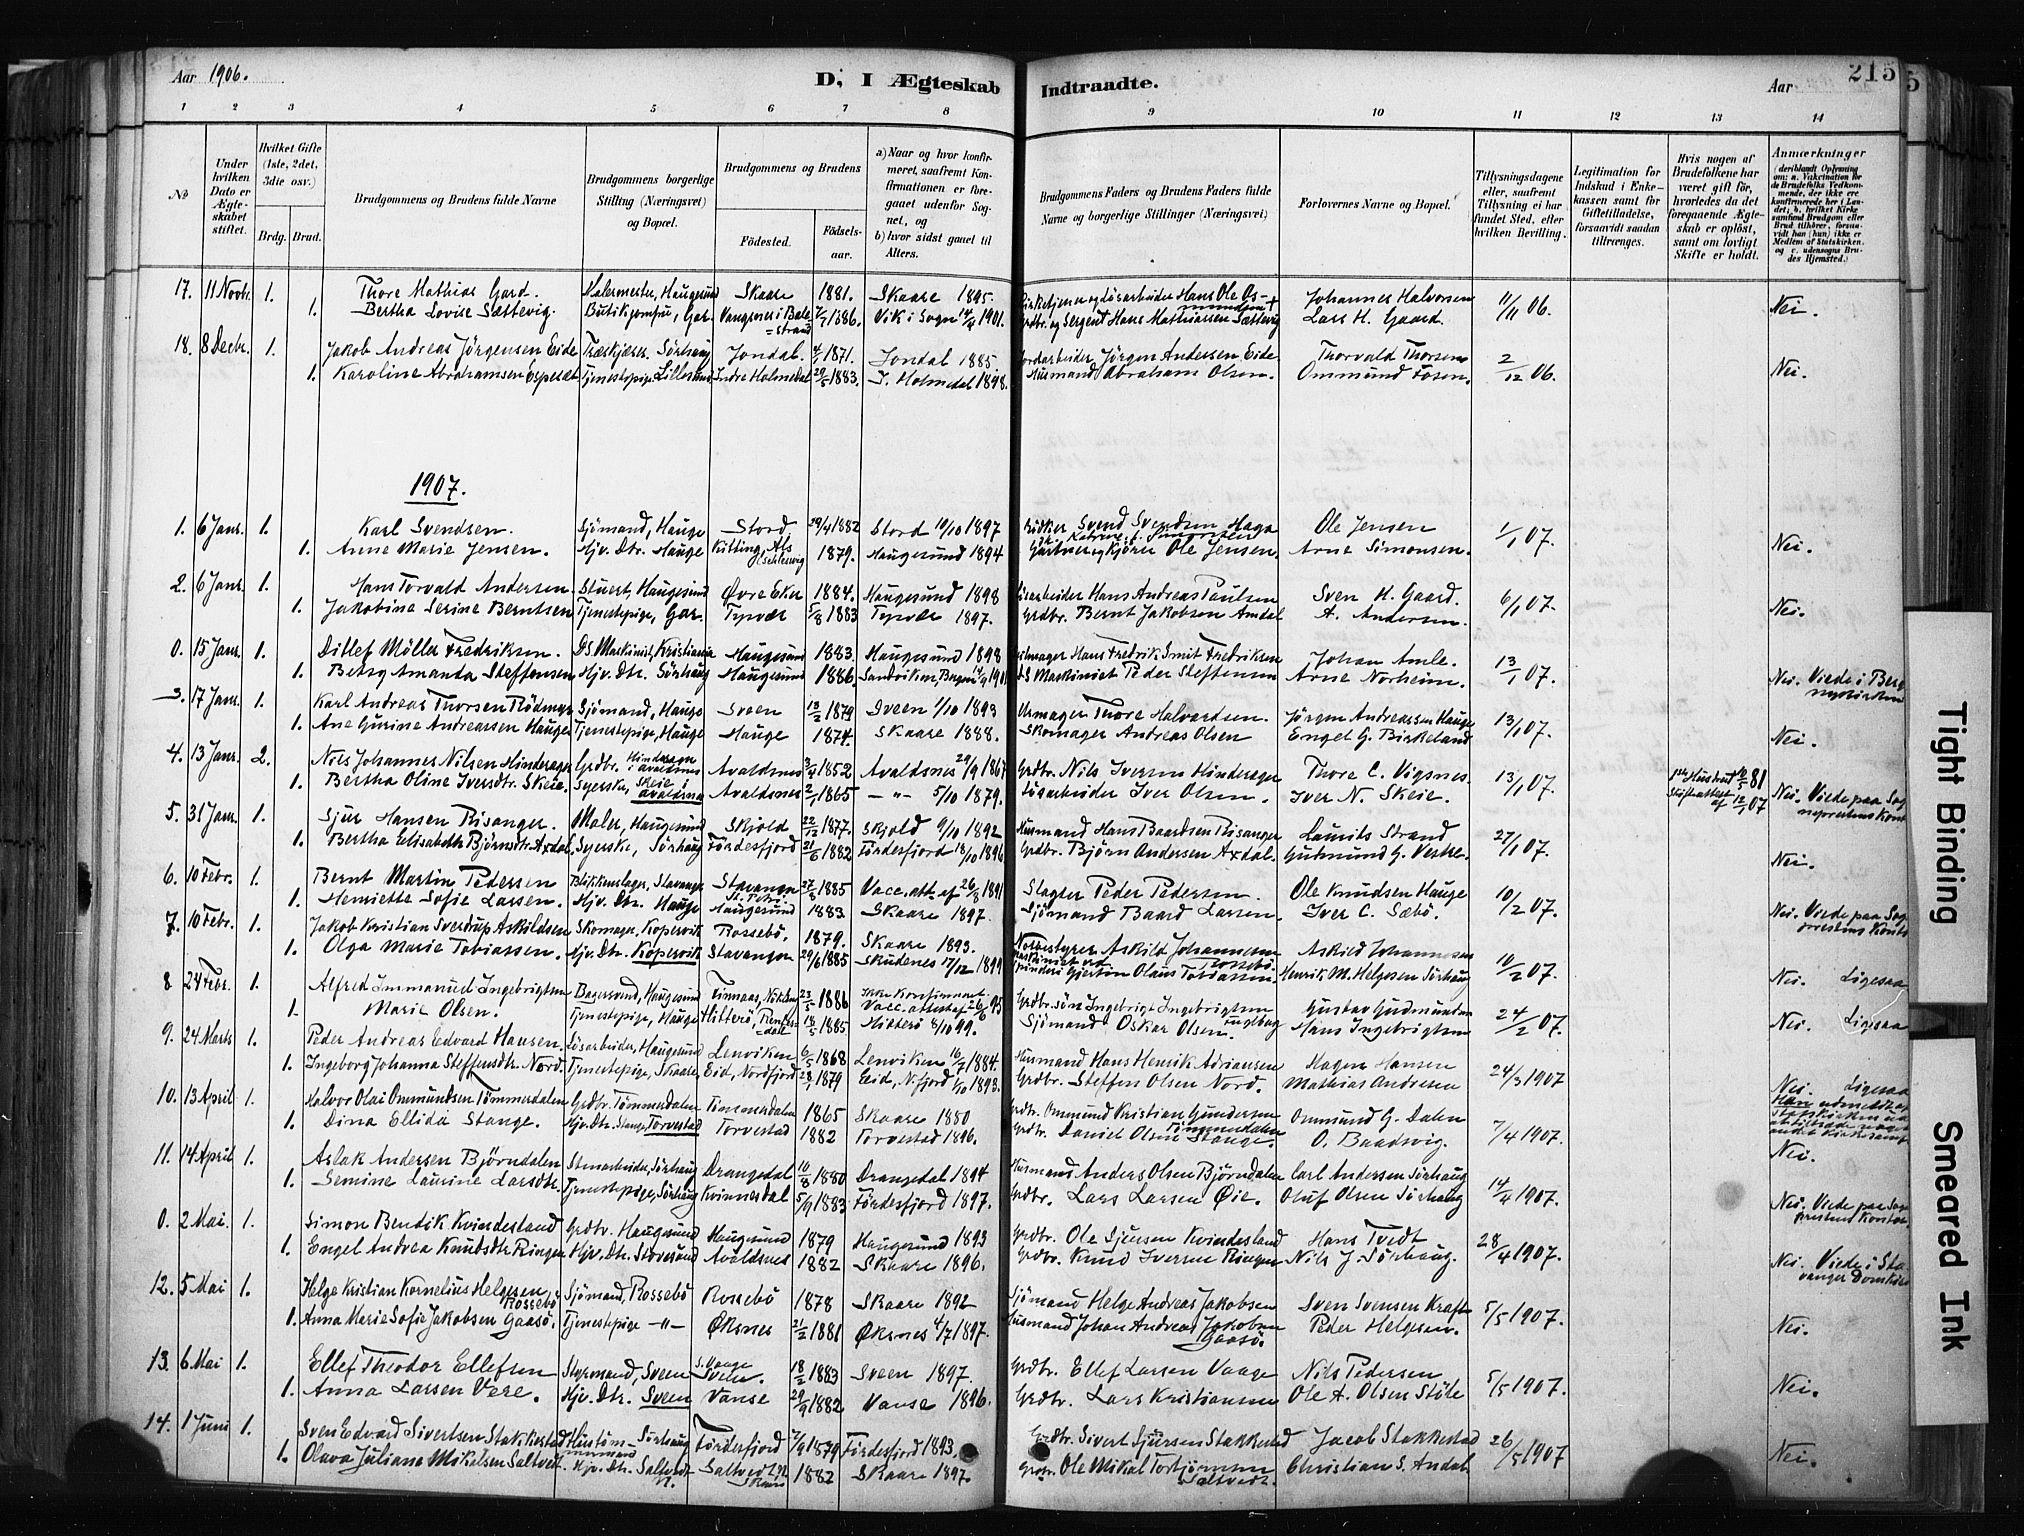 Aar 1906.
D, I Ægteskab
Indtraadte.
Aar
215
5
1 2 3 4 5 6 7 8 9 10 11 12 13 14
No
Under hvilken Dato er Ægteskabet stiftet.
Hvilket Gifte (1ste, 2det, 3die osv.)
Brdg. Brud.
Brudgommens og Brudens fulde Navne
Brudgommens borgerlige Stilling (Næringsvei) og Bopæl.
Brudgommens og Brudens
Fødested.
Fødselsaar.
a) Naar og hvor konfirmeret, saafremt Konfirmationen er foregaaet udenfor Sognet, og
b) hvor sidst gaaet til Alters.
Brudgommens Faders og Brudens Faders fulde Navne og borgerlige Stillinger (Næringsvei)
Forlovernes Navne og Bopæl.
Tillysningsdagene eller, saafremt Tillysning ei har fundet Sted, efter hvilken Bevilling.
Legitimation for Indskud i Enkekassen samt for Giftetilladelse, forsaavidt saadan tiltrænges.
Hvis nogen af Brudefolkene har været gift før, hvorledes da det foregaaende Ægteskab er opløst, samt om lovligt Skifte er holdt.
Anmærkninger
17. 11 Novbr. 1. Thore Mathias Gard. Malermester, Haugesund Skaare 1881. Skaare 1895. Kirketjener og Løsarbeider Hans Ole Osmundsen Johannes Halvorsen 11/11 06. Nei.
1. Bertha Lovise Sættevig. Butikjomfru, Gar. Vangsnes i Balestrand 7/7 1886. Vik i Sogn 14/4 1901. Grdbr. og Sergent Hans Mathiassen Sættevig Lars H. Gaard.
18. 8 Decbr. 1. Jakob Andreas Jörgensen Eide Træskjærer. Sörhaug Jondal. 4/1 1871. Jondal 1885. Jordarbeider Jörgen Andersen Eide Thorvald Thorsen 2/12 06. Nei.
1. Karoline Abrahamsen Espesæt Tjenestepige Lillesund Indre Holmedal 29/5 1883. I. Holmedal 1898. Husmand Abraham Olsen. Ommund Fosen.
1907.
1. 6 Janr. 1. Karl Svendsen. Sjömand, Hauge Stord 29/4 1882 Stord 10/10 1897 Bödker Svend Svendsen Haga Ole Jensen 1/1 07.
1. Anne Marie Jensen. Hjv. Dtr. Hauge Kitting, Als Schleswig 1879. Haugesund 1894 Gartner Ole Jensen. Arne Simonsen. Nei.
2. 6 Janr. 1. Hans Torvald Andersen Stuert, Haugesund Øvre Eker 1884. Haugesund 1898 Løsarbeider Hans Andreas Paulsen Sven H. Gaard. 6/1 07.
1. Jakobine Serine Berntsen Tjenestepige, Gar. Tysvær 5/8 1883 Tysvær 1897. Grdbr. Bernt Jakobsen Amdal A. Andersen. Nei.
0. 15 Janr. 1. Ditlef Möller Fredriksen. D.S. Maskinist, Kristiania Haugesund 1883. Haugesund 1898 Hans Fredrik Smit Fredriksen Johan Amle. 13/1 07.
1. Betsy Amanda Steffensen Hjv. Dtr. Sörhaug Haugesund 1886. Sandviken, Bergen D.S. Maskinist Peder Steffensen Arne Norheim. Nei. Viede i Bergen
3. 17 Janr. 1. Karl Andreas Thorsen Flödinge Sjömand, Hauge Sveen 13/2 1879 Sveen 1/10 1893 Urmager Thore Halvardsen. Jörgen Andreassen Hauge 13/1 07.
1. Ane Gurine Andreassen Hauge Tjenestepige, Hauge Hauge 1874. Skaare 1888. Skomager Andreas Olsen Engel G. Birkeland Nei.
4. 13 Janr. 2. Nils Johannes Nilsen Hinderager Grdbr. Hinderager i Avaldsnes Avaldsnes 1852 Avaldsnes 29/9 1867 Grdbr. Nils Iversen Hinderager Thore C. Vigsnes. 13/1 07. 1ste Hustru † 10/5 81 Skifteattest af 12/1 07
1. Bertha Oline Iversdtr. Skeie. Syerske, Skeie Avaldsnes Avaldsnes 2/1 1865 — " — 5/10 1879. Løsarbeider Iver Olsen. Iver N. Skeie. Nei. Viede paa Sogneprestens Kont
5. 31 Janr. 1. Sjur Hansen Risanger. Maler, Haugesund Skjold 22/12 1877. Skjold 9/10 1892 Husmand Hans Baardsen Risanger Laurits Strand 27/1 07.
1. Bertha Elisabeth Björnsdtr. Axdal. Syerske, Sörhaug Fördesfjord 21/6 1882 Fördesfjord 18/10 1896 Grdbr. Björn Andersen Axdal. Gudmund G. Vestre. Nei.
6. 10 Febr. 1. Bernt Martin Pedersen Blikkenslager, Stavanger Stavanger St. Petri 27/8 1885 Vacc. att. af 26/8 1891 Slagter Peder Pedersen Ole Knudsen Hauge 10/2 07.
1. Henriette Sofie Larsen. Hjv. Dtr. Hauge Haugesund 1883 Skaare 1897. Sjömand Baard Larsen. Iver C. Sæbö. Nei. Viede paa Sogneprestens Kont
7. 10 Febr. 1. Jakob Kristian Sverdrup Askildsen Skomager, Kopervik Rossebö. 1879. Skaare 1893. Askild Johannessen Rossebö. Askild Johannessen 10/2 07.
1. Olga Marie Tobiassen. Hjv. Dtr. Kopervik Stavanger 29/6 1885 Skudenes 17/12 1899 Olaus Tobiassen. Henrik M. Helgesen Sörhaug Nei. Ligesaa
8 24 Febr. 1. Alfred Immanuel Ingebrigtsen Bagersvend, Haugesund Tinnaas, 23/5 1886 Ikke Konfirmeret Vacc. attest af 26/6 95 Grdbr. sön Ingebrigt Ingebrigtsen Gustav Gudmundsen 24/2 07.
1. Marie Olsen. Tjenestepige, Hauge Hitterö, 18/5 1885 Hitterö 8/10 99. Sjömand Oskar Olsen Hans Ingebrigtsen Nei. Ligesaa
9. 24 Marts 1. Peder Andreas Edvard Hansen. Løsarbeider, Haugesund Lenviken 6/5 1868 Lenviken 16/7 1884. Husmand Hans Henrik Adriansen Hagen Hansen 24/3 1907
1. Ingeborg Johanna Steffensdtr. Nord. Tjenestepige, Skaare, Eid, Nordfjord 28/1 1879 Eid, N. fjord 1/10 1893. Grdbr. Steffen Olsen Nord. Mathias Andresen Nei. Ligesaa
10. 13 April 1. Halvor Olai Ommundsen Tömmerdalen Grdbr. Tömmerdalen Timmerdalen 1865 Skaare 1880 Grdbr. Ommund Kristian Gundersen Timmerdalen Ommund G. Dalen 7/4 1907.
1. Dina Ellida Stange. Hjv. Dtr. Stange, Torvestad Torvestad 1882 Torvestad 1896. Grdbr. Daniel Olsen Stange. O. Baadsvig.
11. 14 April 1. Aslak Andersen Björndalen Stenarbeider, Sörhaug Drangedal 16/8 1880 Drangedal 1894 Husmand Anders Olsen Björndalen Carl Andersen Sörhaug 14/4 1907. Nei.
1. Semine Laurine Larsdtr. Tjenestepige, Sörhaug Kvinnesdal 5/9 1883 Fördesfjord 1897. Grdbr. Lars Larsen Øie. Oluf Olsen Sörhaug Nei. Viede paa Sogneprestens Kontor.
0. 2 Mai. 1. Simon Bendik Kvindesland Grdbr. Haugesund Haugesund 1879 Haugesund 1893 Grdbr. Ole Sjursen Kvindesland Hans Tvedt 28/4 1907.
1. Engel Andrea Knudsdtr. Ringen Hjv. Dtr. Storesund Avaldsnes 1882 Skaare 1896. Grdbr. Knud Iversen Ringen Nils J. Sörhaug. Nei. Viede i Stavanger Domkirke
12. 5 Mai 1. Helge Kristian Kornelius Helgesen Rossebö Sjömand, Rossebö Rossebö 1878 Skaare 1892 Sjömand Helge Andreas Jakobsen Sven Svensen Kraft 5/5 1907.
1. Anna Marie Sofie Jakobsen Gaasö. Tjenestepige — " — Øksnes 21/2 1881 Øksnes 4/7 1897. Husmand Johan Andreas Jakobsen Gaasö. Peder Helgesen. Nei.
13. 6 Mai 1. Ellef Theodor Ellefsen Styrmand, Sveen S. Vaage Sveen. 18/2 1883 Sveen 1897. Grdbr. Ellef Larsen Vaage Nils Pedersen 5/5 1907.
1. Anna Larsen Vere. Hjv. Dtr. Sveen Vanse 29/9 1882 Vanse 1896. Grdbr. Lars Kristiansen Ole A. Olsen Stöle Nei.
14. 1 Juni 1. Sven Edvard Sivertsen Stakkestad Hustömmermand Sörhaug Förderfjord 7/9 1879 Förderfjord 1893. Grdbr. Sivert Sjursen Stakkestad Jacob Stakkestad 26/5 1907
1. Olava Juliane Mikelsen Saltvedt. Hjv. Dtr. Saltvedt Saltvedt 1882 Skaare 1897. Grdbr. Ole Mikal Torbjörnsen Saltvedt. Christian S. Andal. Nei.
Tight Binding
Smeared Ink